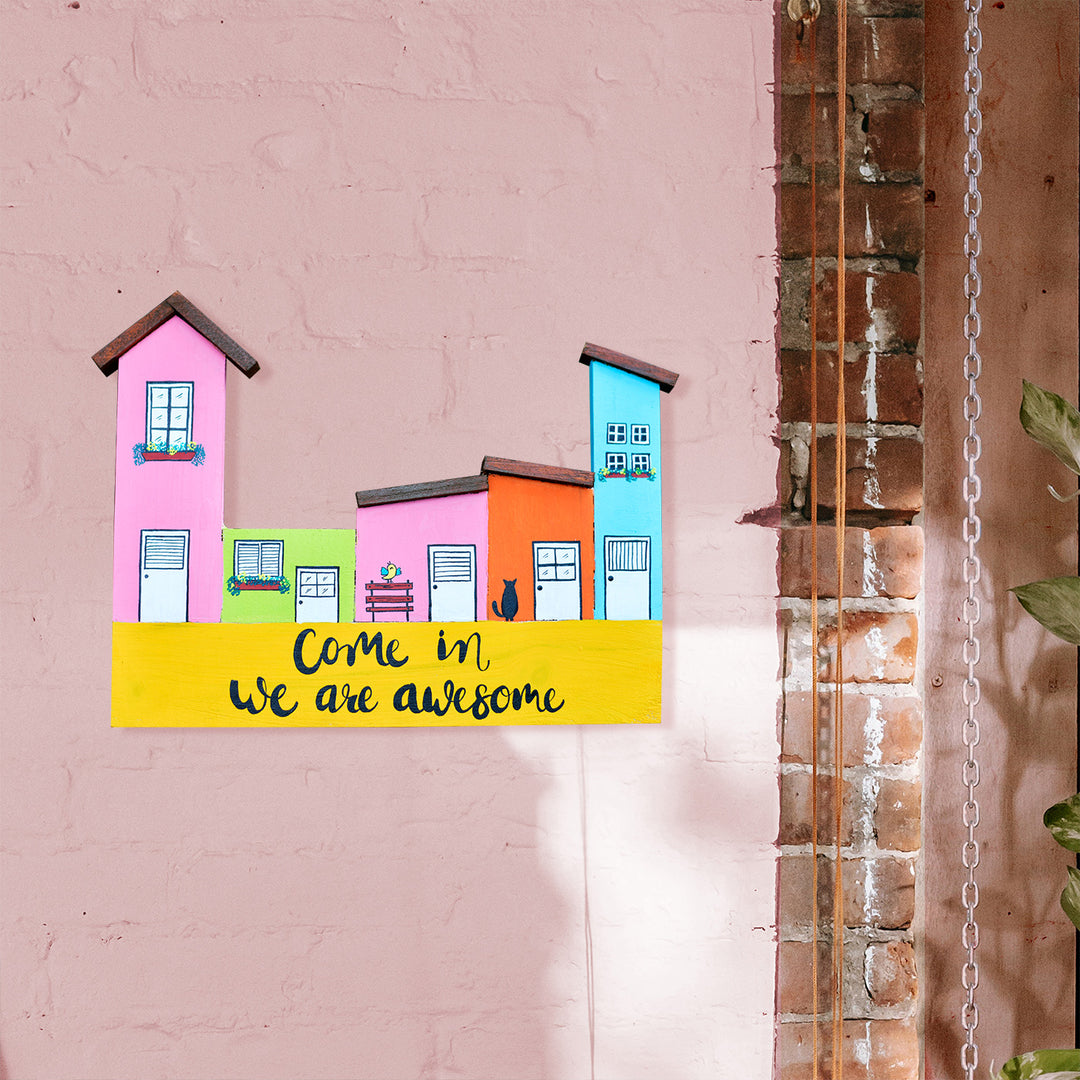 Come in
we are awesome